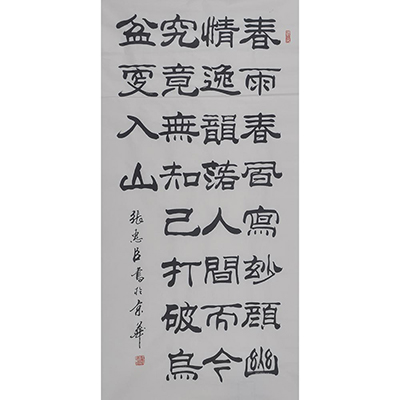 春雨春風寫妙顏幽
情逸韻落人間而今
究竟無知己打破烏
盆更入山
張惠臣書於京華